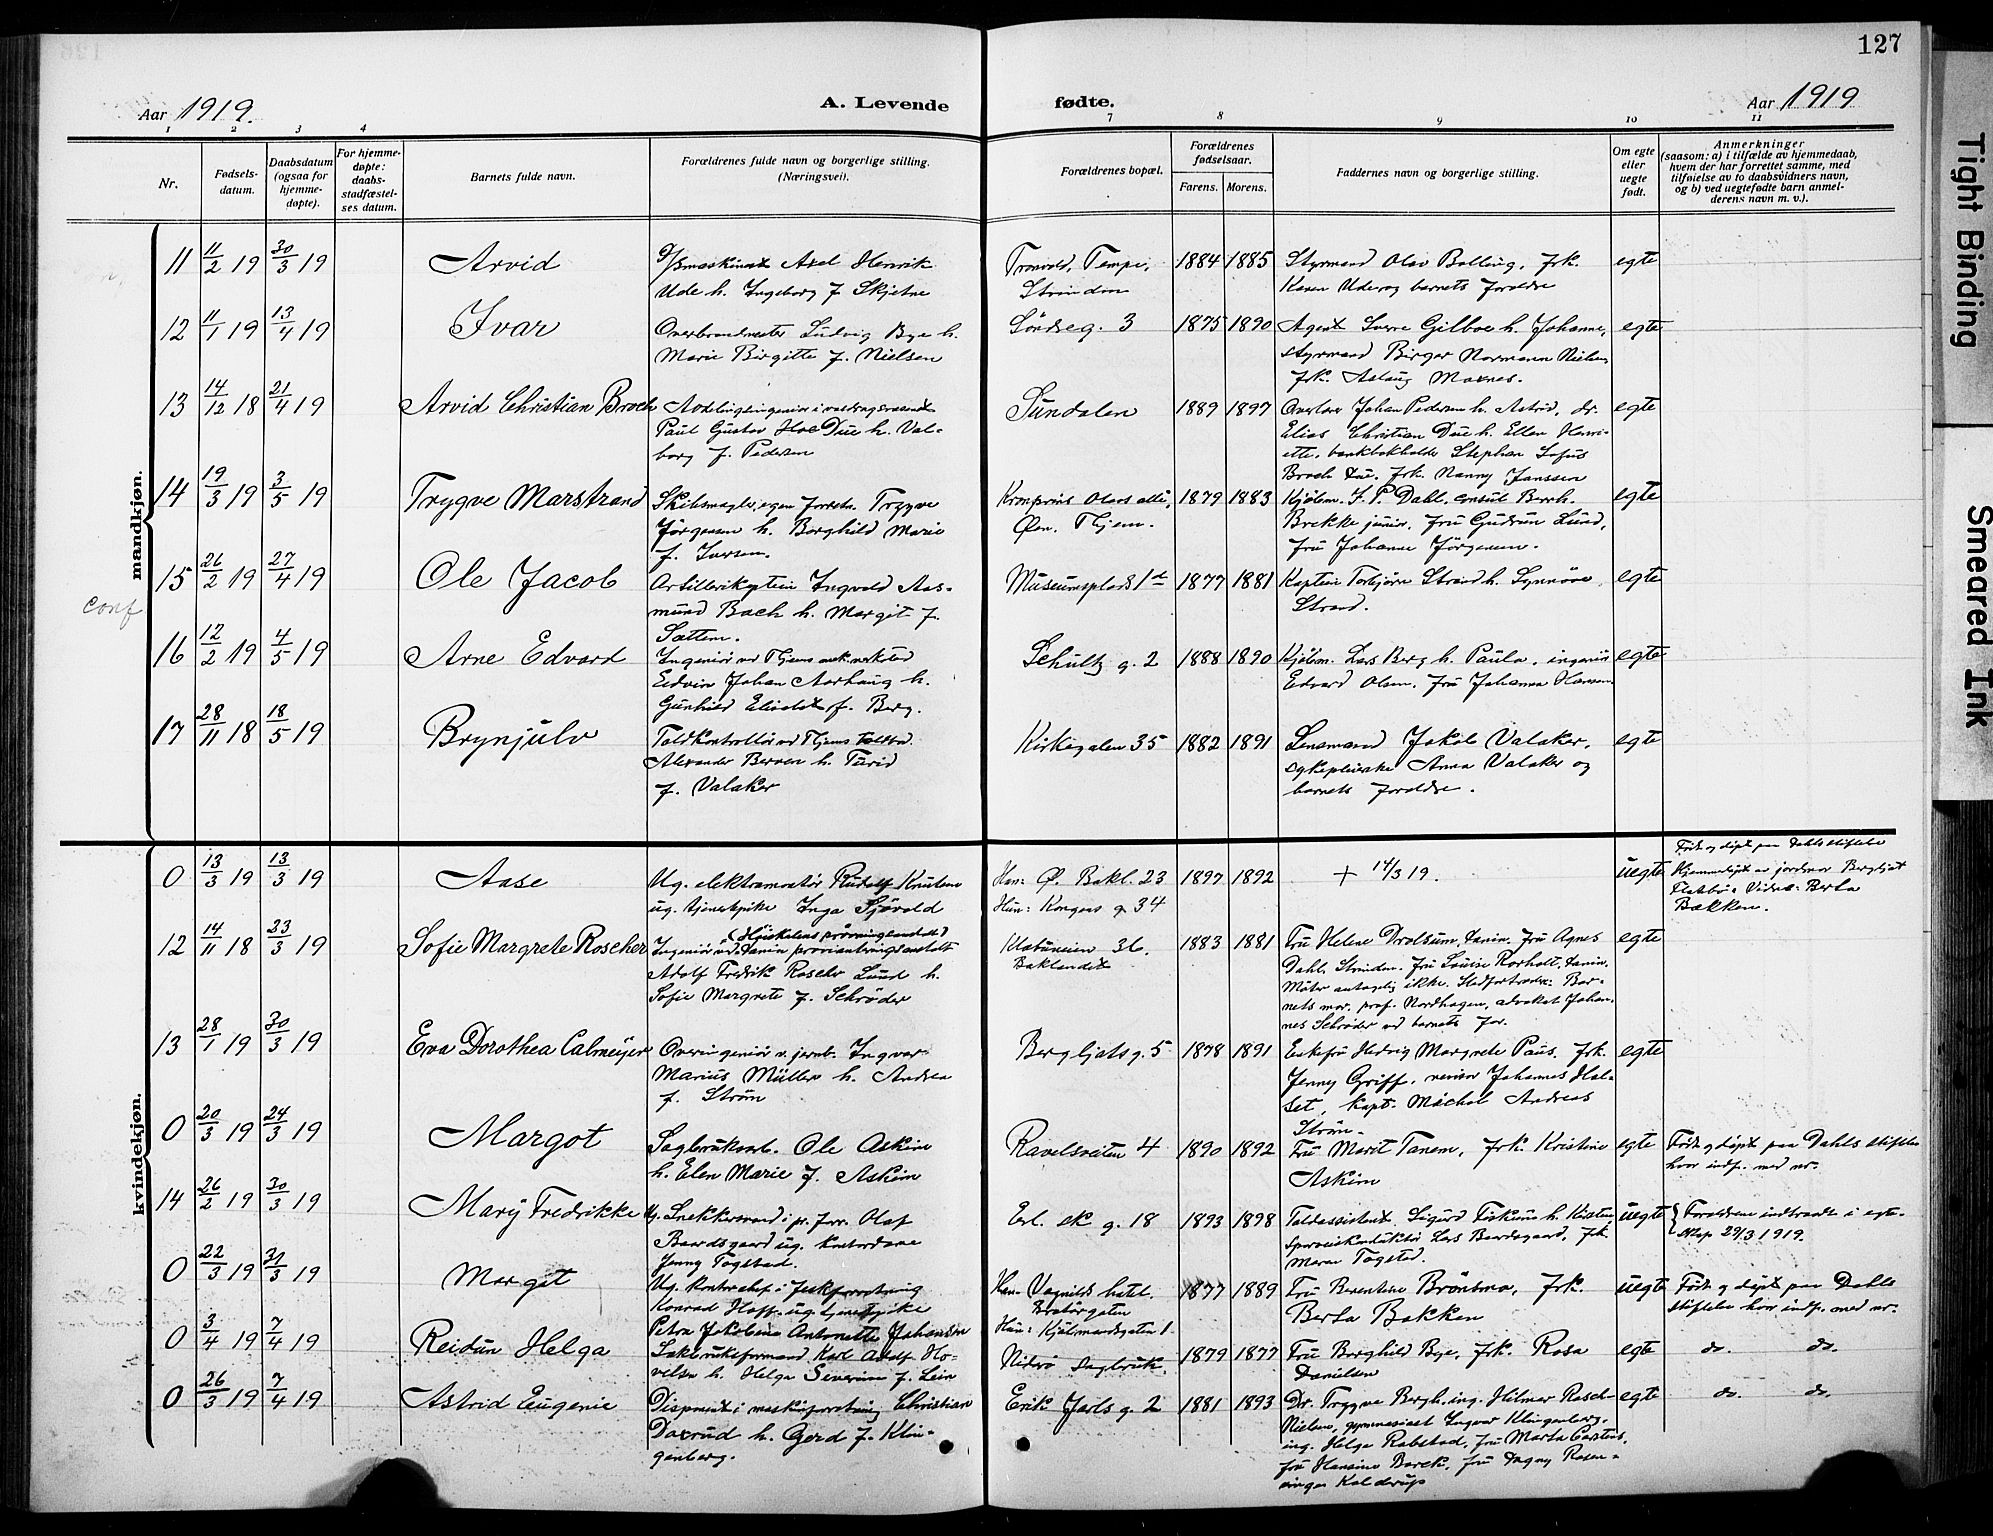 127
Aar 1919.
A. Levende
fødte.
Aar 1919
1 2 3 4 7 8 9 10 11
Nr.
Fødsels-
datum.
Daabsdatum
(ogsaa for
hjemme-
døpte).
For hjemme-
døpte:
daabs-
stadfæstel-
ses datum.
Barnets fulde navn.
Forældrenes fulde navn og borgerlige stilling.
(Næringsvei).
Forældrenes bopæl.
Forældrenes
fødselsaar.
Farens. Morens.
Faddernes navn og borgerlige stilling.
Om egte
eller
uegte
født.
Anmerkninger
(saasom: a) i tilfælde av hjemmedaab,
hvem der har forrettet samme, med
tilføielse av to daabsvidners navn,
og b) ved uegtefødte barn anmel-
derens navn m. v.).
mandkjøn.
conf
11 11/2 19 30/3 19 Arvid
Axel Henrik
Ude h. Ingeborg f. Skjetne
Tempe,
Strinden
1884 1885
Styrmand Olav Balling, frk.
Karen Ude og barnets foraldre
egte
12 11/1 19 13/4 19 Ivar
Overbrandmester Ludvig Bye h.
Marie Birgitte f. Nielsen
Söndreg. 3
1875 1890
Agent Sverre Gilboe h. Johanne,
styrmand Birger Normann Nielsen,
frk. Aslaug Moxnes.
egte
13 14/12 18 21/4 19 Arvid Christian Broch
Avdelingsingeniør i vasdragsvæsenet
Paul Gustav Due h. Val-
borg f. Pedersen
Sundalen
1889 1897
Johan Pedersen h. Astrid, dr.
Elias Christian Due h. Ellen Henri-
ette, bankbokholder Stephan Sofus
Broch Due, frk. Nanny Janssen
egte
14 19/3 19 3/5 19 Trygve Marstrand
Skibsmægler, egen forretn. Trygve
Jörgensen h. Borghild Marie
f. Iversen.
Kronprins Olavs alle,
Thjem.
1879 1883
Kjøbm. F. P. Dahl, consul
Brekke junior, fru Gudrun Lund,
fru Johanne Jörgensen.
egte
15 26/2 19 27/4 19 Ole Jacob
Artillerikaptein Ingvald Aas-
mund Bach h. Margit f.
Sættem.
Museumsplads 1
1877 1881
Kaptein Torbjörn Strand h. Synnöve
Strand.
egte
16 12/2 19 4/5 19 Arne Edvard
Ingeniör ved Thjems mek. verksted
Edvin Johan Aarhaug h.
Gunhild Elisabet f. Berg.
Schultz g. 2
1888 1890
Kjøbm. Lars Berg h. Paula, ingeniör
Edvard Olsen, fru Johanna Hansen
egte
17 28/11 18 18/5 19 Brynjulv
Toldkontrollör ved Thjems toldbod.
Alexander Berven h. Turid
f. Valaker
Kirkegaten 35
1882 1891
Lensmand Jakob Valaker,
sykepleierske Anna Valaker og
barnets foraldre.
egte
kvindekjøn.
0 13/3 19 13/3 19 Aase
Ug. elektromontör Rudolf Knutsen
ug. tjenestpike Inga Sjövold
Han: Ø. Bakl. 23
Hun: Kongens g. 34
1897 1892
+ 14/3 19.
uegte
Født og døpt paa Dahls stiftelse
Hjemmedøpt av jordmor Bergljot
Vidne: Berta
Bakken.
12 14/11 18 23/3 19 Sofie Margrete Roscher
(Höiskolens prövningsanstalt)
Ingeniör ved
Adolf Fredrik Roscher Lund h.
Sofie Margrete f. Schröder
Klæbuveien 36.
Baklandet
1883 1881
Fru Helene Drolsum, fru Agnes
Dahl, Strinden. Fru Louise Rorholt,
Möter antagelig ikke. Stedfortredere: Bar-
nets mor, prof. Nordhagen, advokat Johan-
nes Schröder ved barnets far.
egte
13 28/1 19 30/3 19 Eva Dorothea Calmeyer
Overingeniör v. jernb. Ingvar
Marius Müller h. Andrea
f. Ström
Bergljots g. 5
1878 1891
Enkefru Hedvig Margrete Paus, frk.
Jenny Griff, revisor Johannes Hal-
set, kapt. Michal Andreas
Ström.
egte
0 20/3 19 24/3 19 Margot
Sagbruksarb. Ole Askim
h. Elen Marie f. Askim
Ravelsveiten 4
1890 1892
Fru Marit Tanem, frk. Kristine
Askim
egte
Født og døpt paa Dahls stiftelse
hvor indf. med nr.
14 26/2 19 30/3 19 Mary Fredrikke
Ug. Snekkersvend i pr. forr. Olaf
Baardsgaard ug. kontordame
Jenny Togstad.
Erl. sk. g. 18
1893 1898
Toldassistent Sigurd Fiskum h. Kirsten,
Sporveiskonduktör Lars Baardsgaard, frk.
Maren Togstad.
uegte
Foraldrene indtraadt i egte-
skap 29/3 1919.
0 22/3 19 31/3 19 Margit
Ug. kontorchef i fiskforretning
Konrad Hoff, ug. tjenestpike
Petra Jakobine Antonette Johansen
Han: Vognilds hotel,
Brattörgaten
Hun: Kjöbmandsgaten 1.
1877 1889
Fru Berentine Brönsmo, frk.
Berta Bakken
uegte
Født og døpt paa Dahls
stiftelse hvor indf. med nr.
0 3/4 19 7/4 19 Reidun Helga
Sagbruksformand Karl Adolf Ho-
velsen h. Helga Severine f. Lein
Niderö Sagbruk.
1879 1877
Fru Borghild Bye, frk. Rosa
Danielsen
egte
do. do.
0 26/3 19 7/4 19 Astrid Eugenie
Disponent i maskinforretning Christian
Daxrud h. Gerd f. Klin-
genberg.
Erik Jarls g. 2
1881 1893
Dr. Trygve Bergh, ing. Hilmar Rasch-
Nielsen, gymnasiast Ingvar Klingenberg,
ing. Helge Rabstad, fru Marta Carstens,
fru Hansine Barck, fru Dagny Rosen-
vinges Kalderup
egte
do. do.
Tight Binding
Smeared Ink